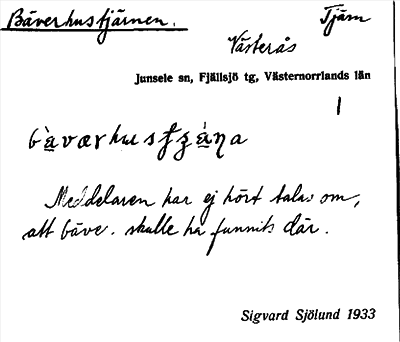 Bäverhustjärnen.
Tjärn
Västerås
Junsele sn, Fjällsjö tg, Västernorrlands län
1
Meddelaren har ej hört talas om,
att bäve. skulle ha funnits där.
Sigvard Sjölund 1933